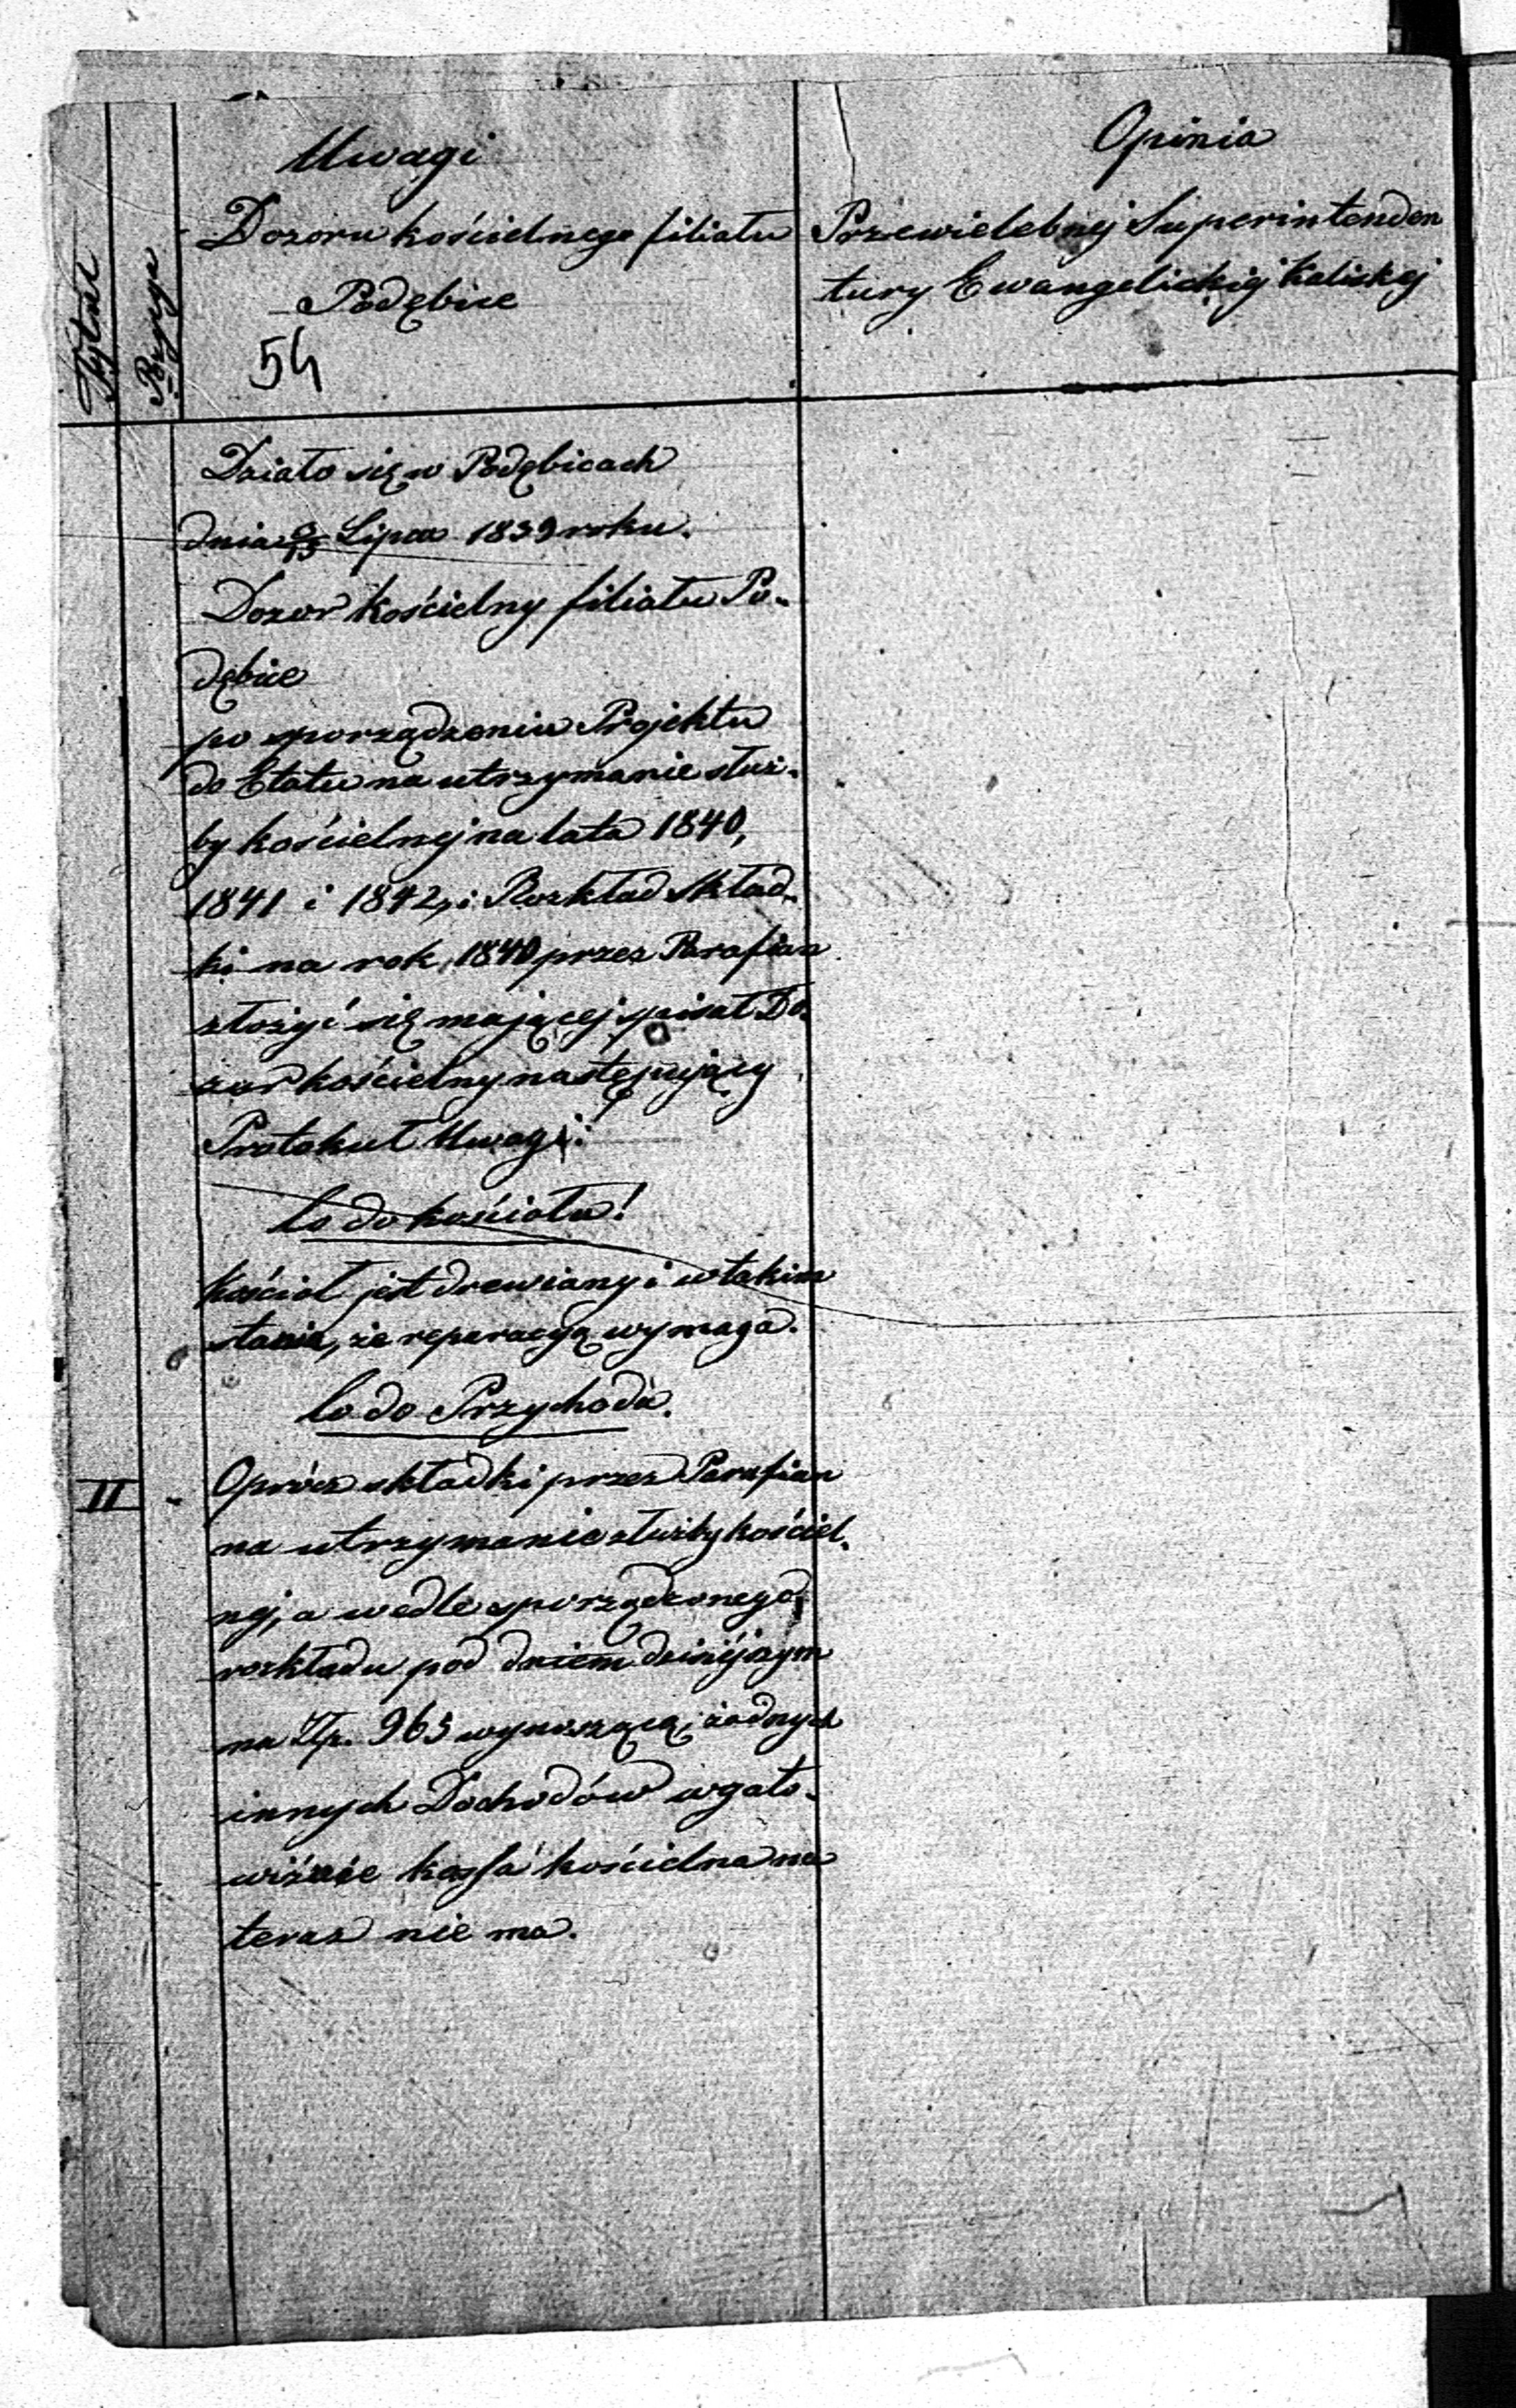 Tytuł
Pozycya
Uwagi
Dozoru kościelnego filiału
Podębice
54
Opinia
Przewielebnej Superintenden
tury Ewangelickiej Kaliskej
Działo się w Podębicach
dnia Lipca 1839 roku.
Dozor kościelny filiału Po-
dębice
po sporządzeniu Projektu
do Etatu na utrzymanie służ-
by kościelnej na lata 1840,
1841 i 1842, i Rozkład Skład-
ki na rok 1840 przez Parafian
złożyć się mającej spisał Do-
zor kościelny następujący
Protokuł Uwagi:
Co do kościoła!
Kościoł jest drewiany i w takim
stanie, że reparacyą wymaga.
Co do Przychoda.
II
Oprócz składki przez Parafian
na utrzymanie służby kościel-
nej, a wedle sporządzonego
rozkładu pod dniem dzisiejszym
na Złp. 963 wynoszącą, żadnych
innych Dochodów w goto-
wiźnie kassa kościelna na
teraz nie ma.